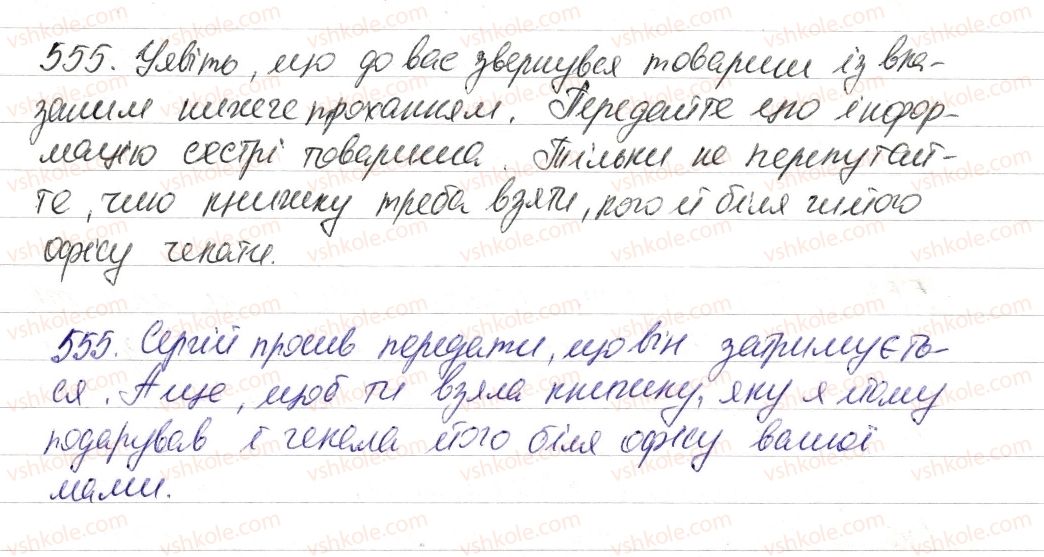 555. Уявіть, що до вас звернувся товариш із вка-
заним нижче проханням. Передайте цю інфор-
мацію сестрі товариша. Тільки не перепутай-
те, чию книжку треба взяти, кого й біля чийого
офісу чекати.
555. Сергій просив передати, що він затримуєть-
ся. А ще, щоб ти взяла книжку, яку я йому
подарував і чекала його біля офісу вашої
мами.